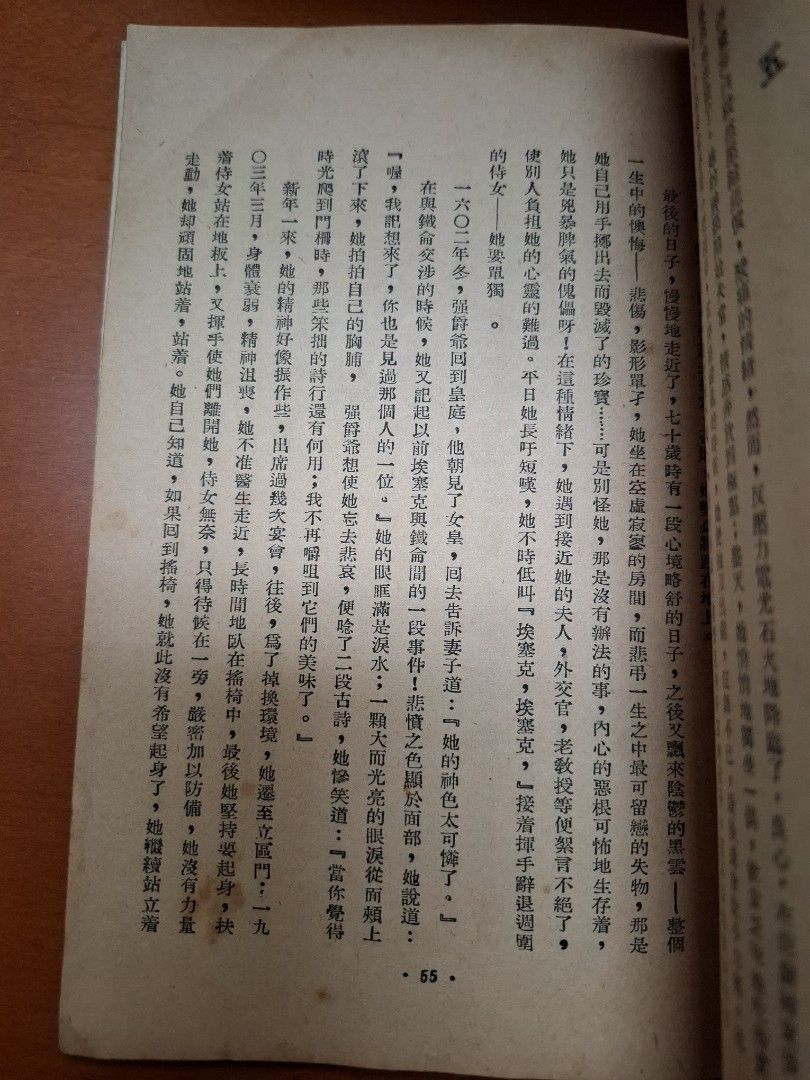 最後的日子，慢慢地走近了，七十歲時有一段心境略舒的日子，之後又飄來陰鬱的黑雲——整個
一生中的懊悔——悲傷，影形單孑，她坐在空虛寂寥的房間，而悲弔一生之中最可留戀的失物，那是
她自己用手擲出去而毀滅了的珍寶……可是別怪她，那是沒有辦法的事，內心的惡根可怖地生存着，
她只是兇暴脾氣的傀儡呀！在這種情緒下，她遇到接近她的夫人，外交官，老教授等便絮言不絕了，
使別人負担她的心靈的難過。平日她長吁短嘆，她不時低叫『埃塞克，埃塞克，』接着揮手辭退週圍
的侍女——她要單獨　。
一六〇二年冬，强爵爺回到皇庭，他朝見了女皇，回去告訴妻子道：『她的神色太可憐了。』
在與鐵侖交涉的時候，她又記起以前埃塞克與鐵侖間的一段事件！悲憤之色顯於面部，她說道：
『喔，我記想來了，你也是見過那個人的一位。』她的眼眶滿是淚水；一顆大而光亮的眼淚從面頰上
滾了下來，她拍拍自己的胸脯，　强爵爺想使她忘去悲哀，便唸了二段古詩，她慘笑道：『當你覺得
時光爬到門柵時，那些笨拙的詩行還有何用；我不再嚼咀到它們的美味了。』
新年一來，她的精神好像振作些，出席過幾次宴會，往後，爲了掉換環境，她遷至立區門；一九
〇三年三月，身體衰弱，精神沮喪，她不准醫生走近，長時間地臥在搖椅中，最後她堅持要起身，扶
着侍女站在地板上，又揮手使她們離開她，侍女無奈，只得待候在一旁，嚴密加以防備，她沒有力量
走動，她却頑固地站着，站着。她自己知道，如果回到搖椅，她就此沒有希望起身了，她繼續站立着
· 55 ·